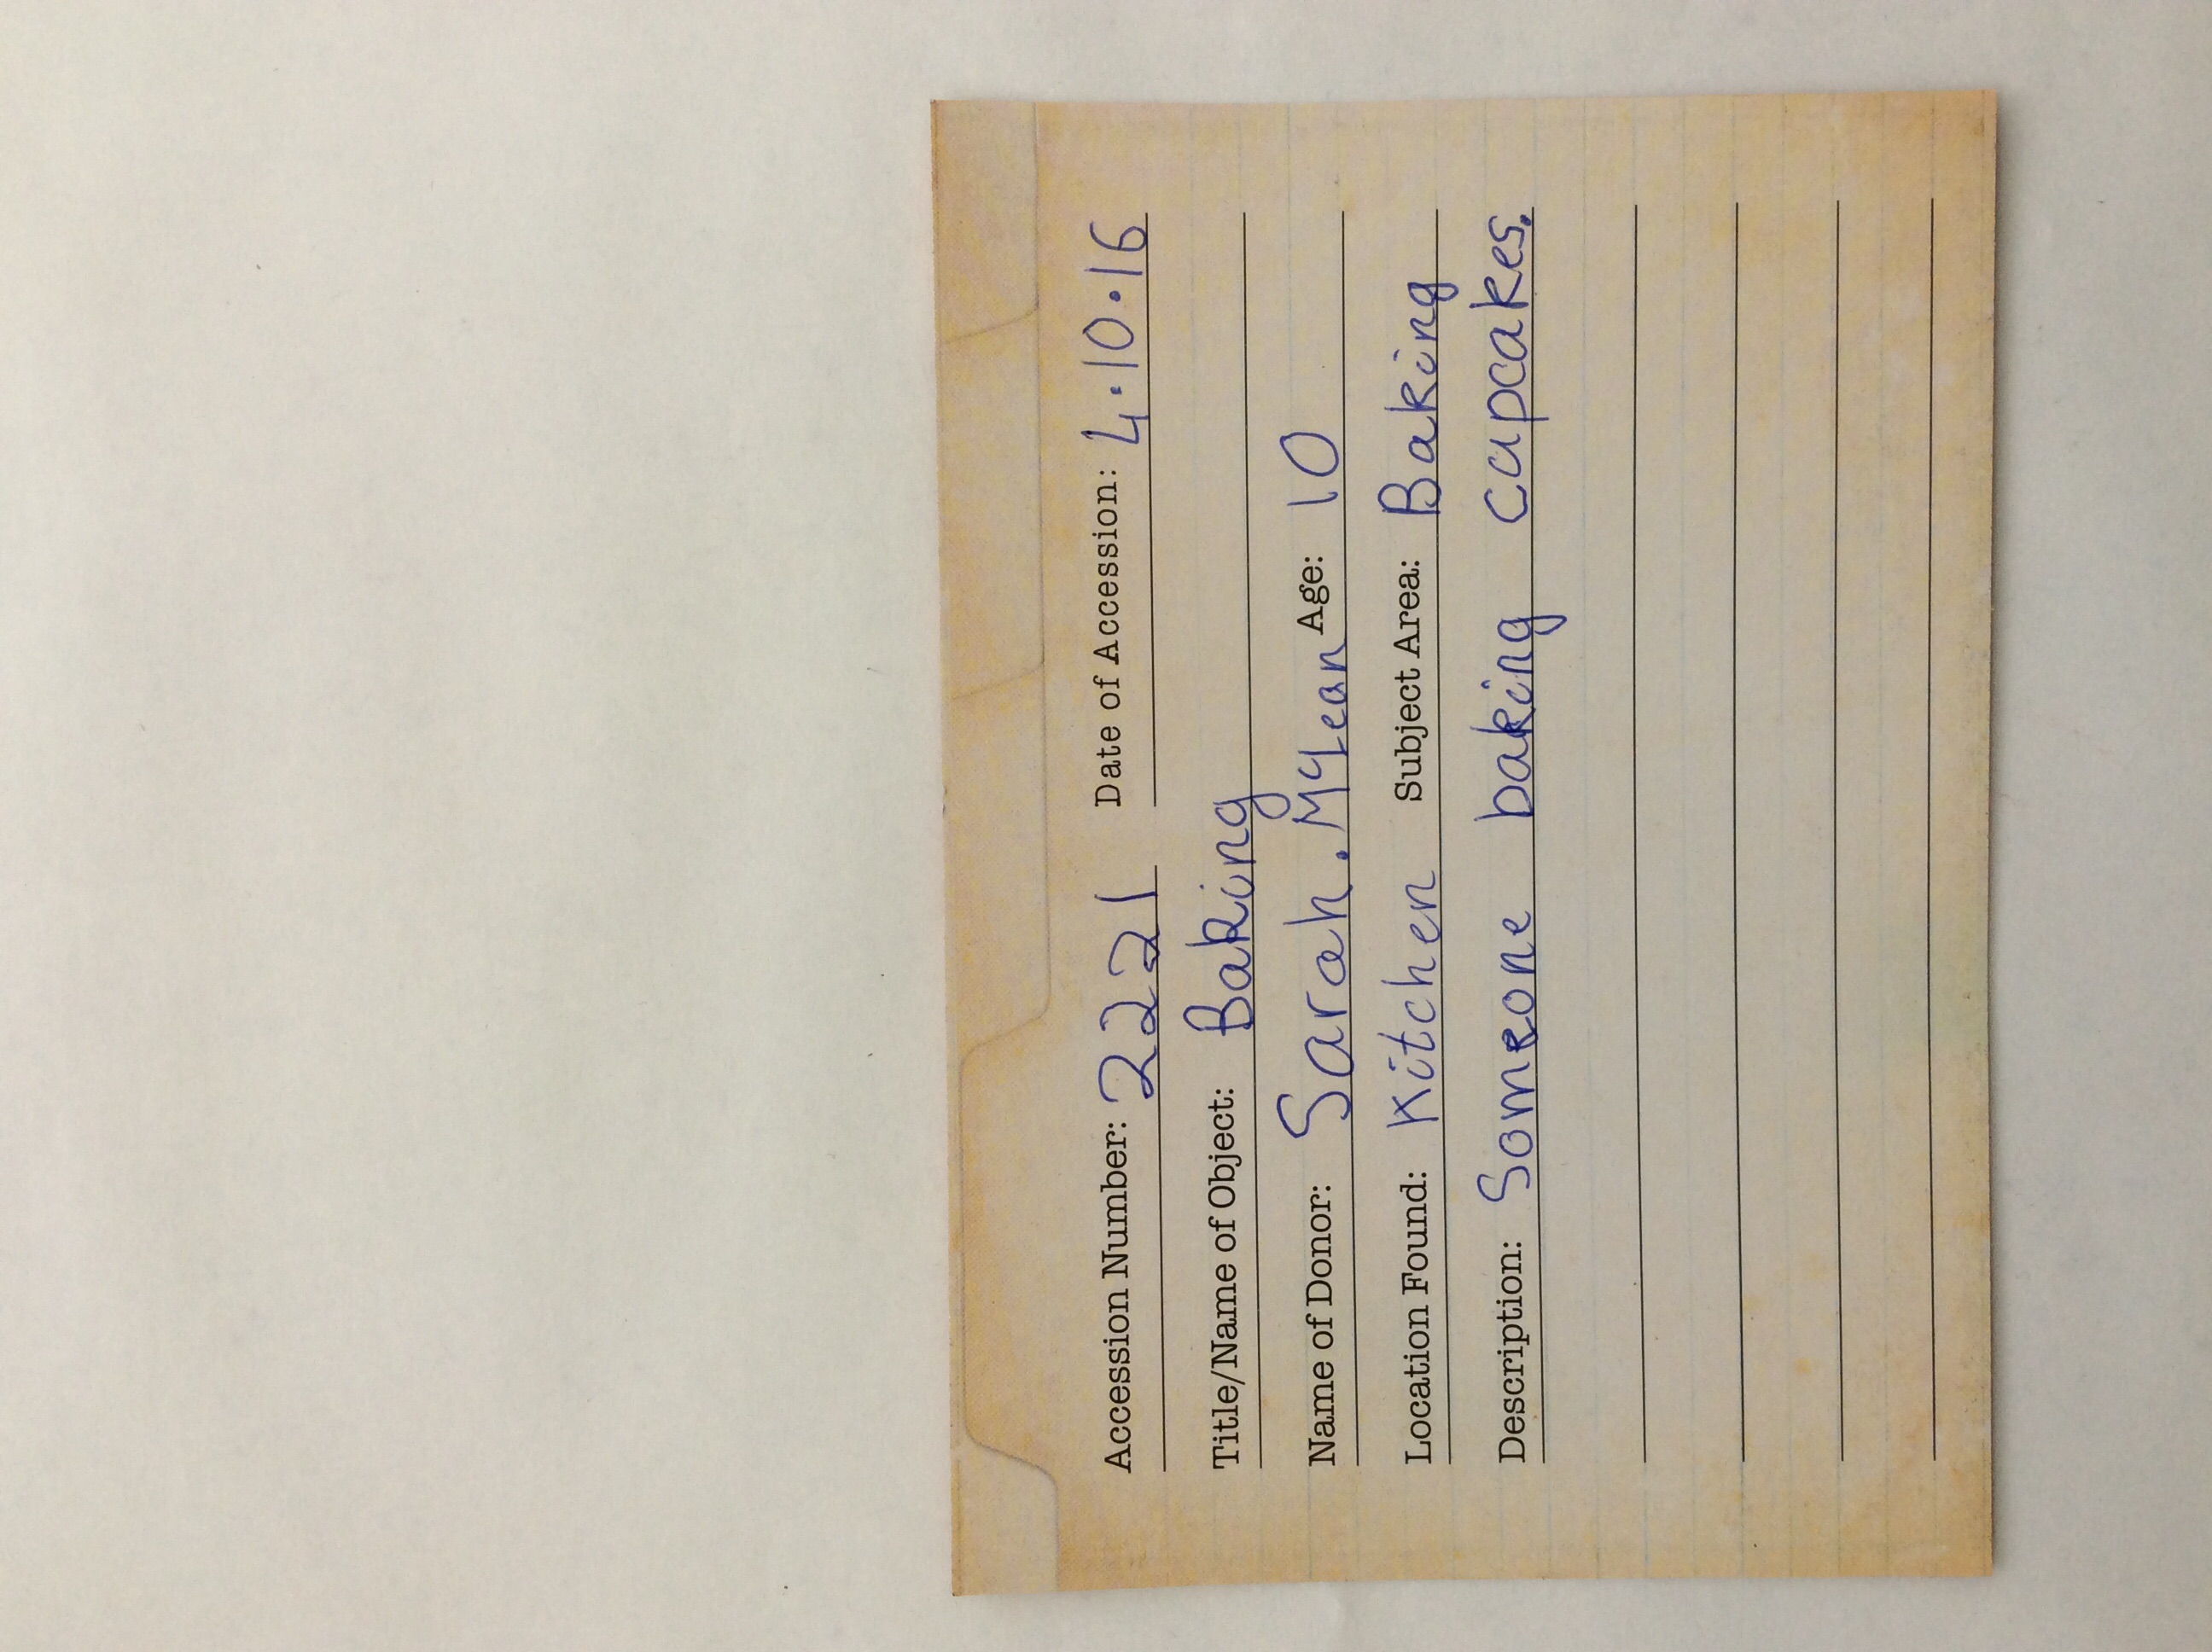 Accession Number: 2221 Date of Accession: 4.10.16
Title/Name of Object: Baking
Name of Donor: Sarah. McLean Age: 10
Location Found: Kitchen Subject Area: Baking
Description: Someone baking cupcakes.